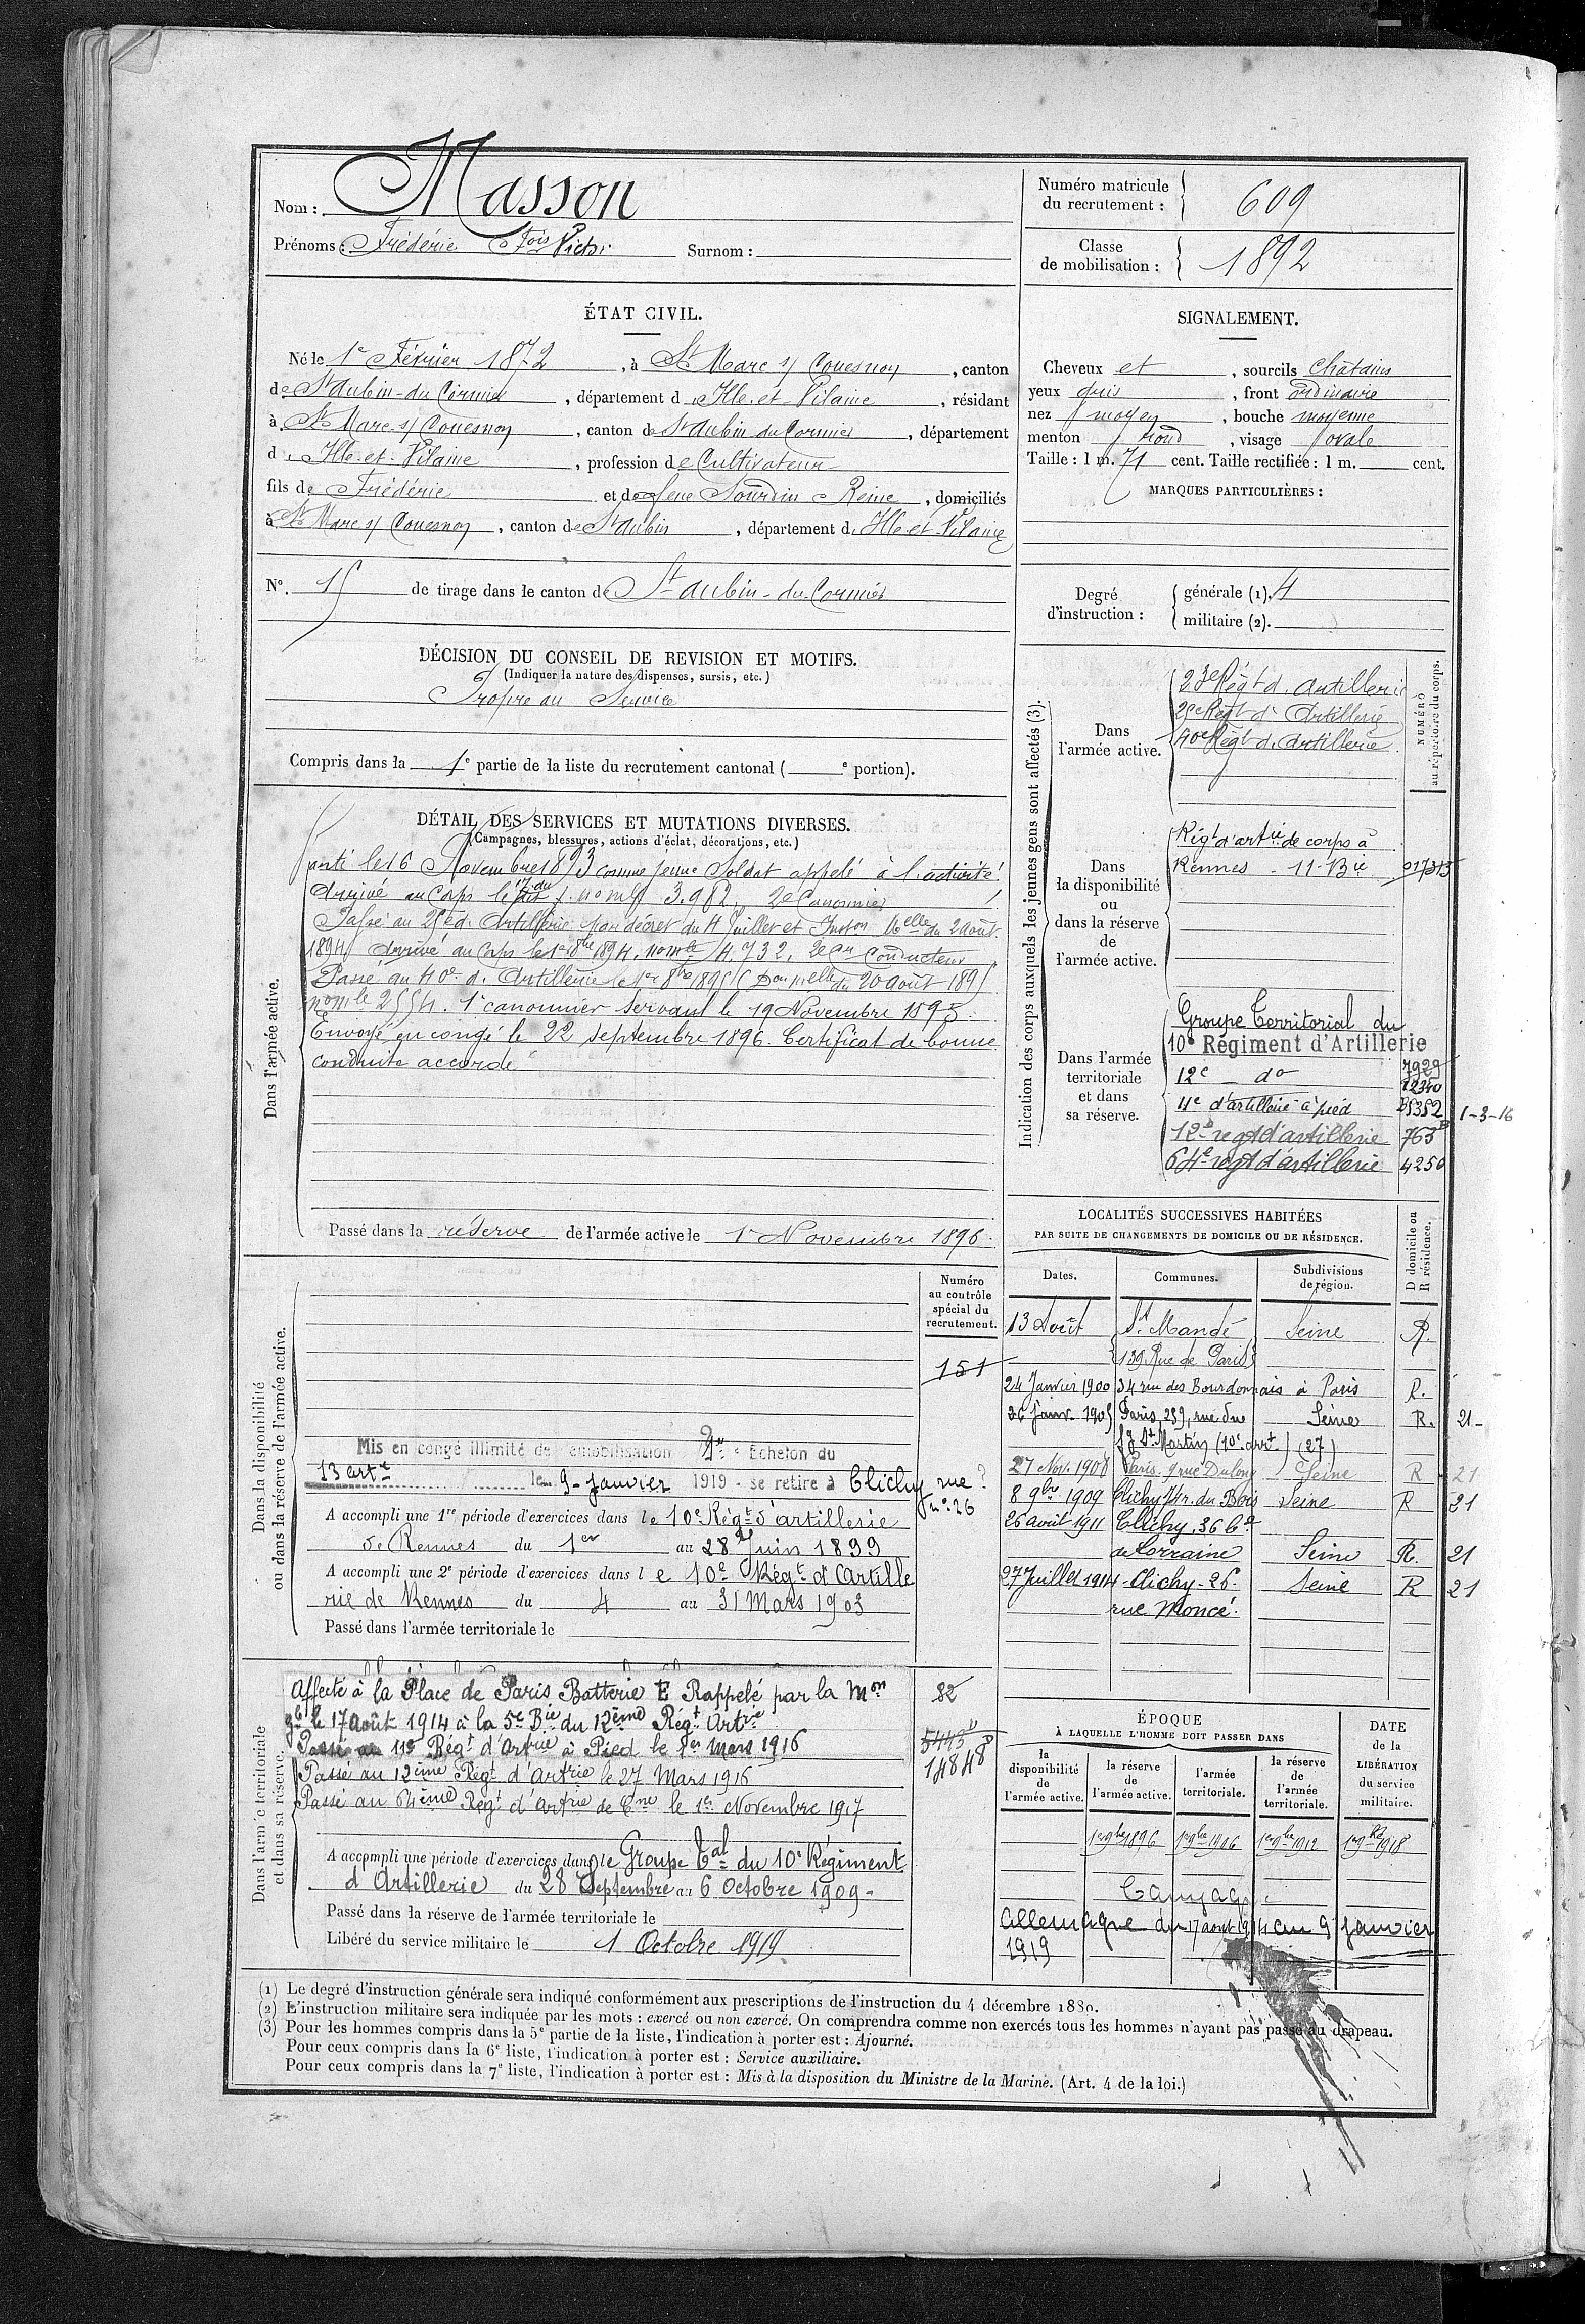 Nom : Masson
Prénoms : Frédéric Fois Victor Surnom :
Numéro matricule du recrutement : 609
Classe de mobilisation : 1892
ÉTAT CIVIL.
Né le 1e Février 1872, à St Marc s/ Couesnon, canton
de St Aubin-du-Cormier, département d'Ille-et-Vilaine, résidant
à St Marc s/ Couesnon, canton de St Aubin du Cormier, département
d'Ille-et-Vilaine, profession de Cultivateur
fils de Frédéric et de feue Sourdin Reine, domiciliés
à St Marc s/ Couesnon, canton de St Aubin, département d'Ille-et-Vilaine
SIGNALEMENT.
Cheveux et, sourcils châtains
yeux gris, front ordinaire
nez moyen, bouche moyenne
menton rond, visage ovale
Taille : 1 m. 71 cent. Taille rectifiée : 1 m. cent.
MARQUES PARTICULIÈRES :
No. 15 de tirage dans le canton de St Aubin-du-Cormier
Degré d'instruction : générale (1). 4
militaire (2).
DÉCISION DU CONSEIL DE REVISION ET MOTIFS.
(Indiquer la nature des dispenses, sursis, etc.)
Propre au Service
Compris dans la 1e partie de la liste du recrutement cantonal ( e portion).
DÉTAIL DES SERVICES ET MUTATIONS DIVERSES.
(Campagnes, blessures, actions d'éclat, décorations, etc.)
Dans l'armée active.
Parti le 16 Novembre 1893 comme jeune Soldat appelé à l'activité
Arrivé au Corps le 17 du dit no mle 3.982, 2e Canonnier
Passé au 25e d'Artillerie par décret du 4 Juillet et Inston Melle du 2 août
1894 Arrivé au Corps le 1er 8bre 1894, no mle 4.732, 2e Cer Conducteur
Passé au 40e d'Artillerie le 1er 8bre 1895 (Don Melle du 20 août 1895
no mle 2554. 1e canonnier servant le 19 Novembre 1895.
Envoyé en congé le 22 septembre 1896. Certificat de bonne
conduite accordé
Passé dans la réserve de l'armée active le 1er Novembre 1896.
Indication des corps auxquels les jeunes gens sont affectés (3).
NUMÉRO au répertoire du corps.
Dans l'armée active.
23e Régt d'Artillerie
25e Régt d'Artillerie
40e Régt d'Artillerie
Dans la disponibilité ou dans la réserve de l'armée active.
Régt d'artie de corps à
Rennes - 11e Bie 017315
Dans l'armée territoriale et dans sa réserve.
Groupe Territorial du
10e Régiment d'Artillerie 7929
12e do 12340
11e d'artillerie à pied 5352 1-3-16
12e regt d'artillerie 763
64e regt d'artillerie 4250
LOCALITÉS SUCCESSIVES HABITÉES
PAR SUITE DE CHANGEMENTS DE DOMICILE OU DE RÉSIDENCE.
Dates. Communes. Subdivisions de région. D domicile ou R résidence.
13 Août St Mandé Seine R.
139 Rue de Paris
24 Janvier 1900 34 rue des Bourdonnais à Paris R.
26 Janv. 1905 Paris, 259, rue du Seine R. 21
fg St Martin (10e arrt) (27)
27 Nov. 1908 Paris 9 rue Dulong Seine R 21
8 9bre 1909 Clichy 14 r. du Bois Seine R 21
26 août 1911 Clichy, 36 Bd
de Lorraine Seine R. 21
27 Juillet 1914 Clichy - 26 Seine R 21
rue Moncé.
Dans la disponibilité ou dans la réserve de l'armée active.
Numéro au contrôle spécial du recrutement.
151
Mis en congé illimité de démobilisation 2e Echelon du
13 arte le 9 janvier 1919 - se retire à Clichy rue ?
no 26
A accompli une 1re période d'exercices dans le 10e Régt d'artillerie
de Rennes du 1er au 28 Juin 1899
A accompli une 2e période d'exercices dans le 10e Régt d'Artille
rie de Rennes du 4 au 31 Mars 1903
Passé dans l'armée territoriale le
Dans l'armée territoriale et dans sa réserve.
Affecté à la Place de Paris Batterie E Rappelé par la Mon
gle le 17 août 1914 à la 5e Bie du 12ème Régt Artie
Passé au 11e Régt d'Artrie à Pied le 1er Mars 1916
Passé au 12ème Régt d'Artrie le 27 Mars 1916
Passé au 64ème Régt d'Artrie de Cne le 1er Novembre 1917
82
5443
14848
A accompli une période d'exercices dans le Groupe Tal du 10e Régiment
d'Artillerie du 28 Septembre au 6 Octobre 1909 -
Passé dans la réserve de l'armée territoriale le
Libéré du service militaire le 1 Octobre 1919
ÉPOQUE
À LAQUELLE L'HOMME DOIT PASSER DANS
la disponibilité de l'armée active. la réserve de l'armée active. l'armée territoriale. la réserve de l'armée territoriale. DATE de la LIBÉRATION du service militaire.
1er 9bre 1896 1er 9bre 1906 1er 9bre 1912 1er 9bre 1918
Campagne
Allemagne du 17 août 1914 au 9 janvier
1919
(1) Le degré d'instruction générale sera indiqué conformément aux prescriptions de l'instruction du 4 décembre 1889.
(2) L'instruction militaire sera indiquée par les mots : exercé ou non exercé. On comprendra comme non exercés tous les hommes n'ayant pas passé au drapeau.
(3) Pour les hommes compris dans la 5e partie de la liste, l'indication à porter est : Ajourné.
Pour ceux compris dans la 6e liste, l'indication à porter est : Service auxiliaire.
Pour ceux compris dans la 7e liste, l'indication à porter est : Mis à la disposition du Ministre de la Marine. (Art. 4 de la loi.)